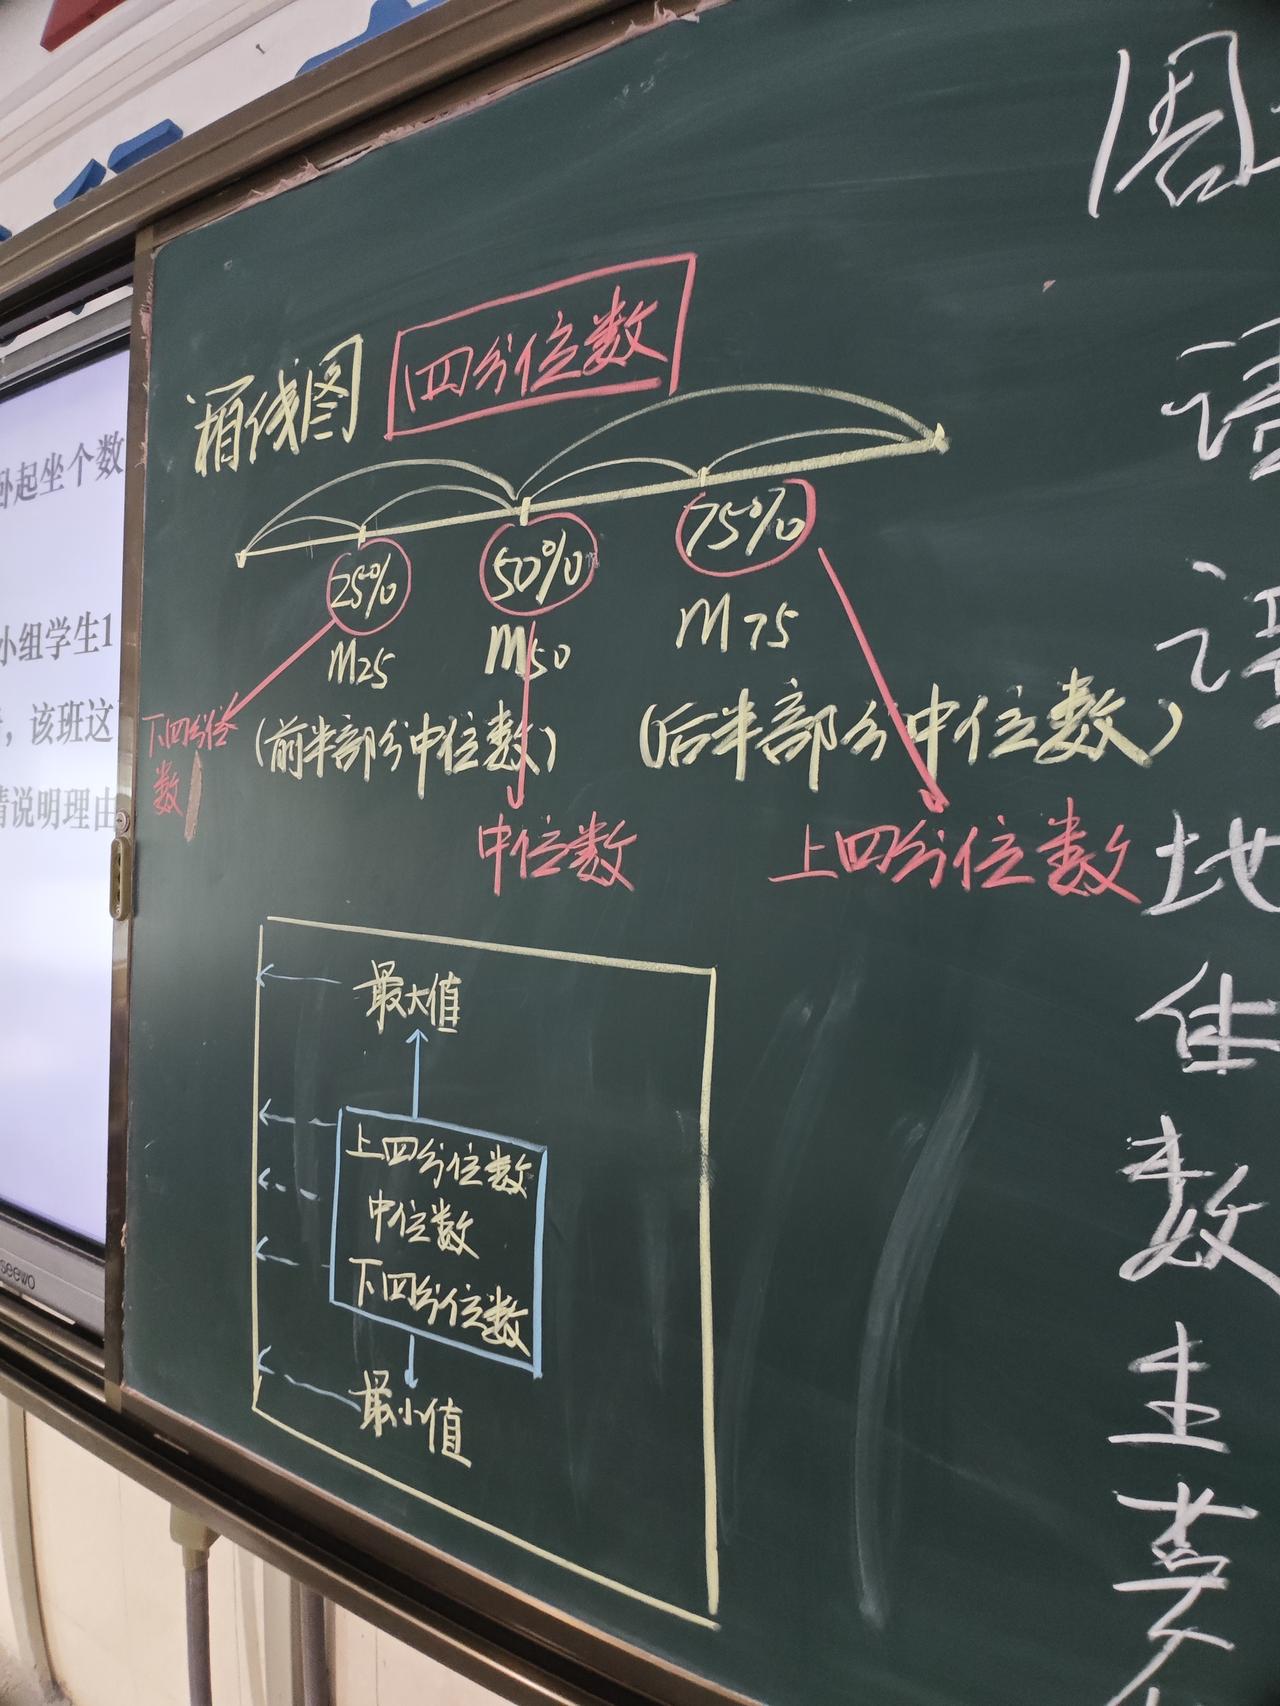 箱线图 四分位数
25% 50% 75%
M25 M50 M75
下四分位
数
(前半部分中位数) (后半部分中位数)
中位数 上四分位数
最大值
上四分位数
中位数
下四分位数
最小值
卧起坐个数
小组学生1
,该班这
请说明理由
seewo
周
语
语
地
生
数
生
英